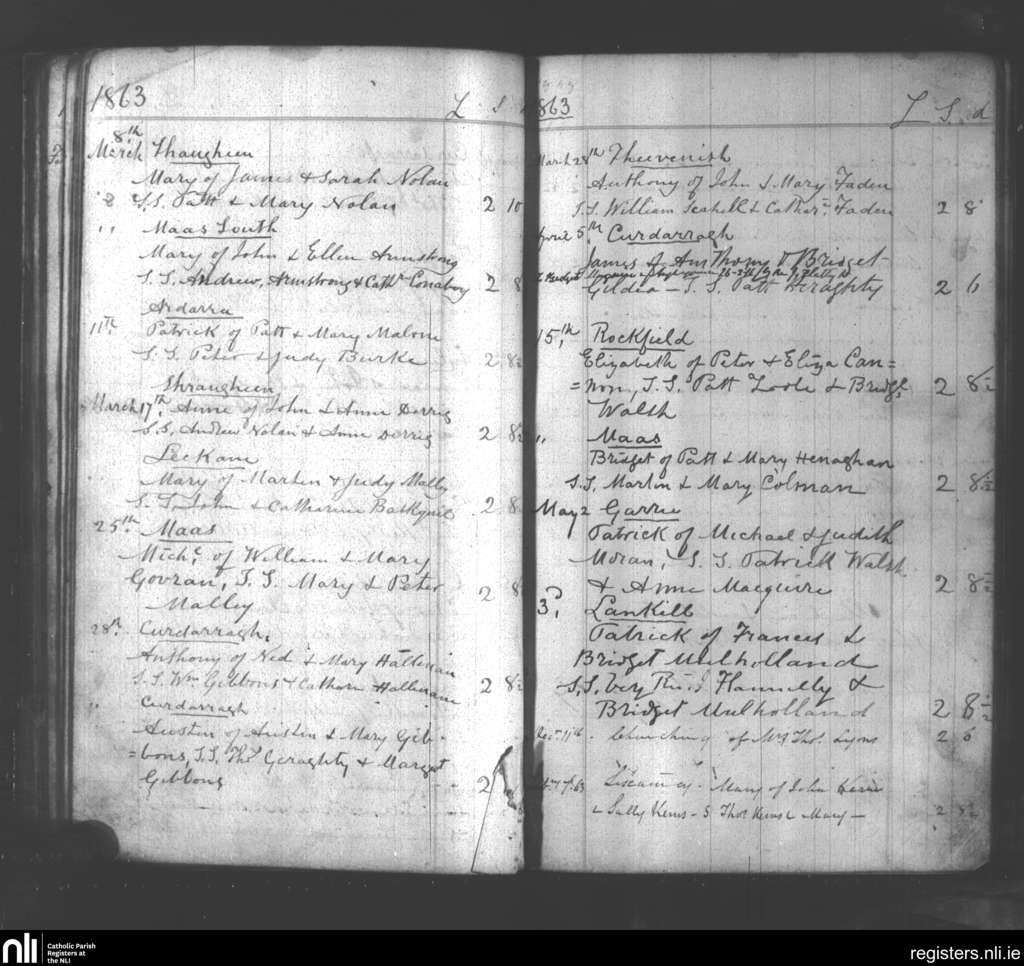 1863
L S
8th
March Thraugheen
Mary of James & Sarah Nolan
" 8 S.S. Patt & Mary Nolan 2 10
" Maas South
Mary of John & Ellen Armstrong
S.S. Andrew Armstrong & Cath. Conaboy 2 8
Ardarra
11th Patrick of Patt & Mary Malone
S.S. Peter & Judy Burke 2 8½
Shraugheen
March 17th Anne of John & Anne Derrig
S.S. Andrew Nolan & Anne Derrig 2 8½
Leckane
Mary of Martin & Judy Mally
S.S. John & Catherine Baskquil 2 8
25th Maas
Mich. of William & Mary
Govran, S.S. Mary & Peter 2 8
Malley
28th Curdarragh,
Anthony of Ned & Mary Hallinan
S.S. Wm Gibbons & Cathare Hallinane 2 8½
" Curdarragh
Austin of Austin & Mary Gib-
=bons, S.S. Thos Geraghty & Margret
Gibbons 2
1863
L S. d
March 28th Theevenish
Anthony of John & Mary Faden
S.S. William Scahill & Cathar. Faden 2 8
April 5th Curdarragh
James of Anthony & Bridget
Gildea - S.S. Patt Heraghty 2 6
15th, Rockfield
Elizabeth of Peter & Eliza Can=
=non, S.S. Patt Toole & Bridgt 2 8½
Walsh
" Maas
Bridget of Patt & Mary Henaghan
S.S. Martin & Mary Colman 2 8½
May 2 Garrie
Patrick of Michael & Judith
Moran, S.S. Patrick Walsh
& Anne Macguire 2 8½
3, Lankill
Patrick of Frances &
Bridget Mulholland
S,S. Very Flannelly &
Bridget Mulholland 2 8½
11th Churching of Mrs Thos. Lyons 2 6
63 Mary of John Kerin
& Sally Kerns - S Thos Kerns & Mary - 2
nli Catholic Parish
Registers at
the NLI
registers.nli.ie